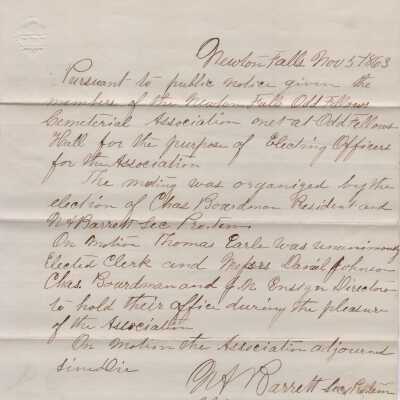 Newton Falls Nov 5th 1863
Pursuant to public notice given the
members of the Newton Falls Odd Fellows
Cemeterial Association met at Odd Fellows
Hall for the purpose of Electing Officers
for the Association
The meeting was organized by the
election of Chas Boardman President and
N A Barrett Sec Protem
On Motion Thomas Earle was unanimously
Elected Clerk and Messrs Daniel Johnson
Chas. Boardman and J. N. Ensign Directors
to hold their office during the pleasure
of the Association
On Motion the Association adjourned
Sine Die
N A Barrett Sec Protem